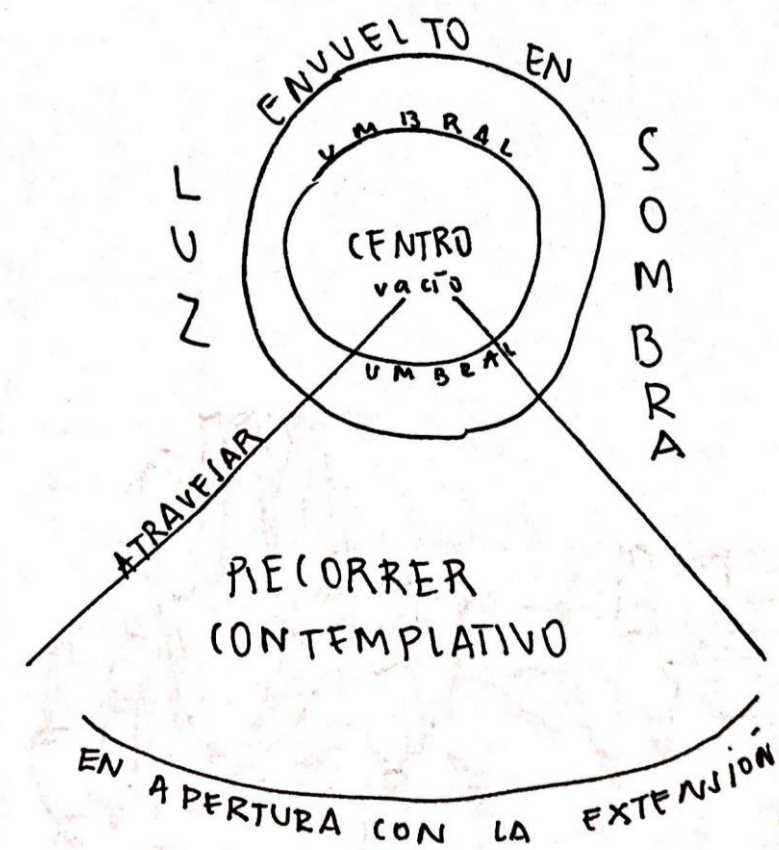 ENVUELTO EN
LUZ
SOMBRA
UMBRAL
CENTRO
vacío
UMBRAL
ATRAVESAR
RECORRER
CONTEMPLATIVO
EN APERTURA CON LA EXTENSIÓN